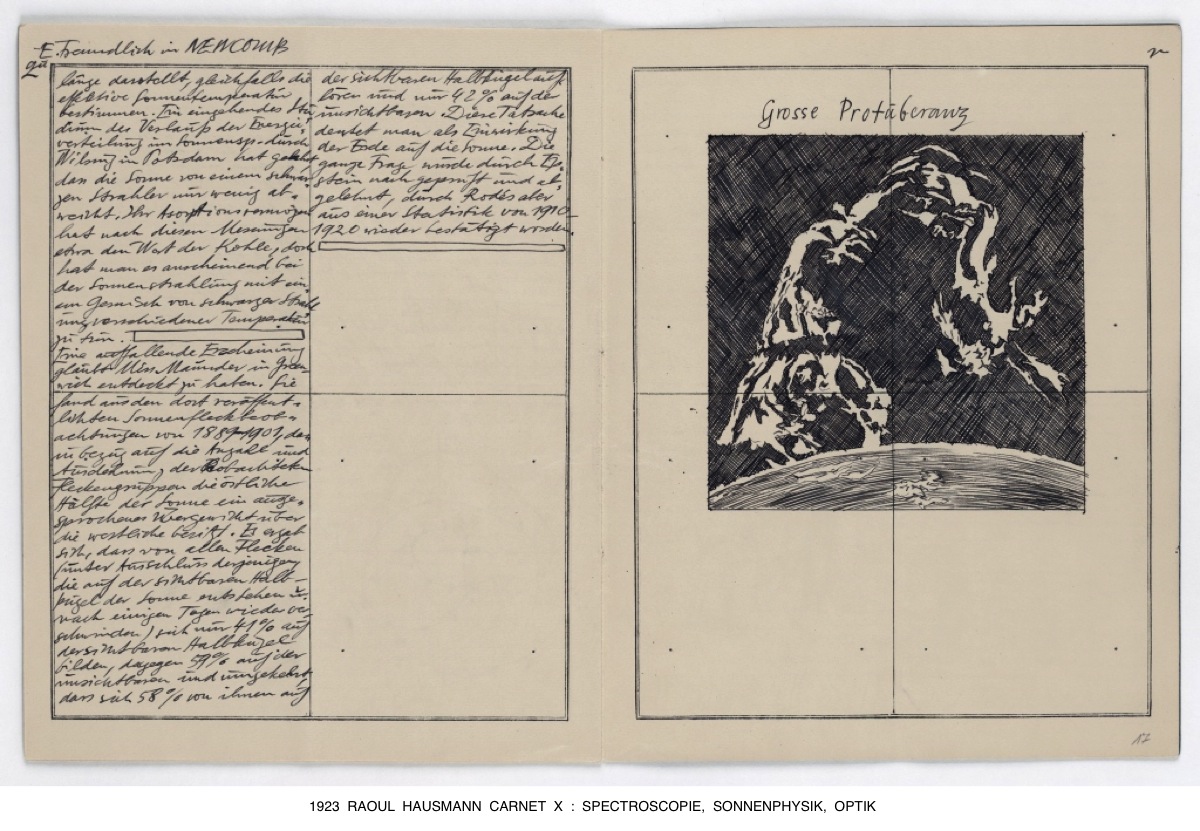 E. Freundlich in NEWCOMB
länge darstellt, gleichfalls die
effektive Sonnentemperatur
bestimmen. Ein eingehendes Stu
dium des Verlaufs der Energie-
verteilung im Sonnensp. durch
Wilsing in Potsdam hat gelehrt
dass die Sonne von einem schwar
zen Strahler nur wenig ab-
weicht. Ihr Asorptionsvermögen
hat nach diesen Messungen
etwa den Wert der Kohle, doch
hat man es anscheinend bei
der Sonnenstrahlung mit ein
em Gemisch von schwarzer Strahl
ung verschiedener Temperatur
zu tun.
Eine auffallende Erscheinung
glaubt Miss Maunder in Green
wich entdeckt zu haben. Sie
fand aus den dort veröffent-
lichten Sonnenfleckbeob-
achtungen von 1889-1901, dass
in bezug auf die Anzahl und
Ausdehnung der Beobachteten
Fleckengruppen die östliche
Hälfte der Sonne ein ausge-
sprochenes Übergewicht über
die westliche besitzt. Es ergab
sich, dass von allen Flecken
(unter Ausschluss derjenigen
die auf der sichtbaren Halb-
kugel der Sonne entstehen u.
nach einigen Tagen wieder ver
schwinden) sich nur 41% auf
der sichtbaren Halbkugel
bilden, dagegen 59% auf der
unsichtbaren und umgekehrt,
dass sich 58% von ihnen auf
der sichtbaren Halbkugel auf-
lösen und nur 42% auf der
unsichtbaren. Diese Tatsache
deutet man als Einwirkung
der Erde auf die Sonne. Die
ganze Frage wurde durch Ep-
stein nach geprüft und ab-
gelehnt, durch Rodes aber
aus einer Statistik von 1910-
1920 wieder bestätigt worden.
Grosse Protuberanz
17
1923 RAOUL HAUSMANN CARNET X : SPECTROSCOPIE, SONNENPHYSIK, OPTIK